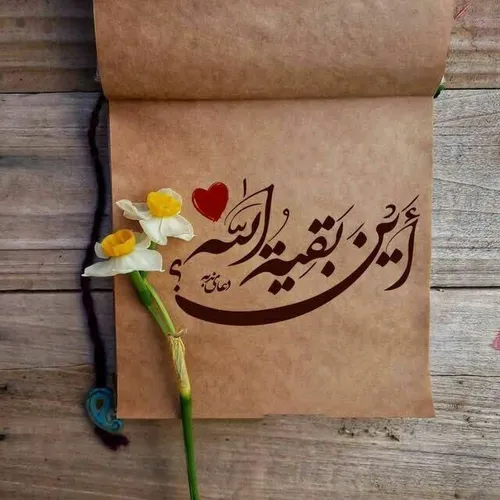 أین بَقیة الله؟
دعای ندبه